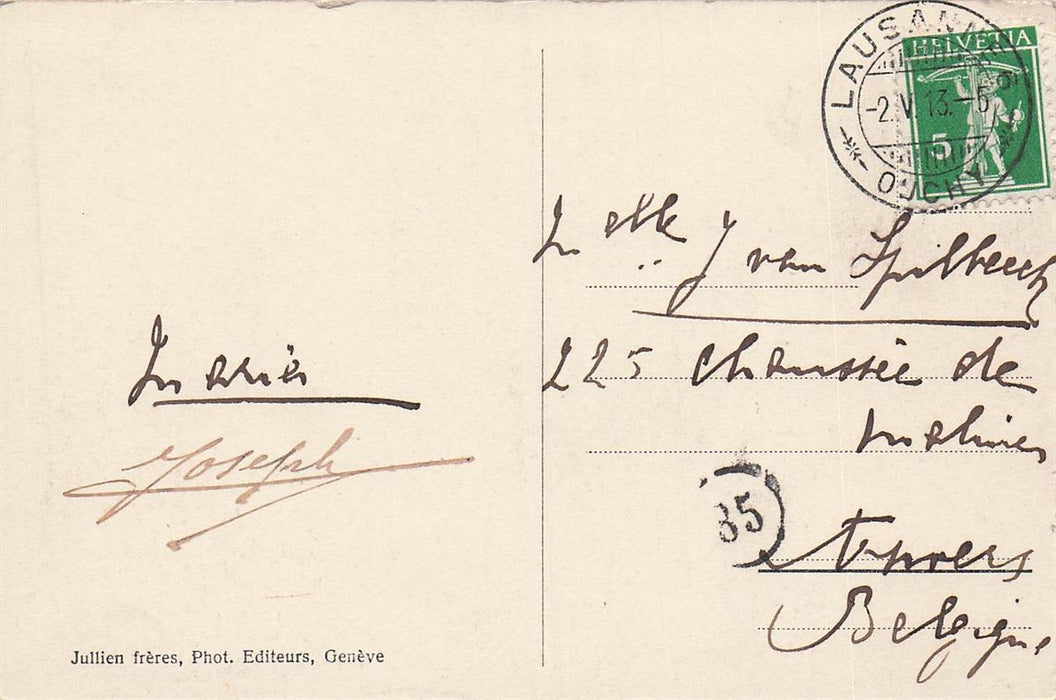 LAUSANNE
-2.V.13.-6
OUCHY
HELVETIA
5
Melle J van Spilbeeck
225 chaussée de
malines
Anvers
Belgique
35
Maria
Joseph
Jullien frères, Phot. Editeurs, Genève